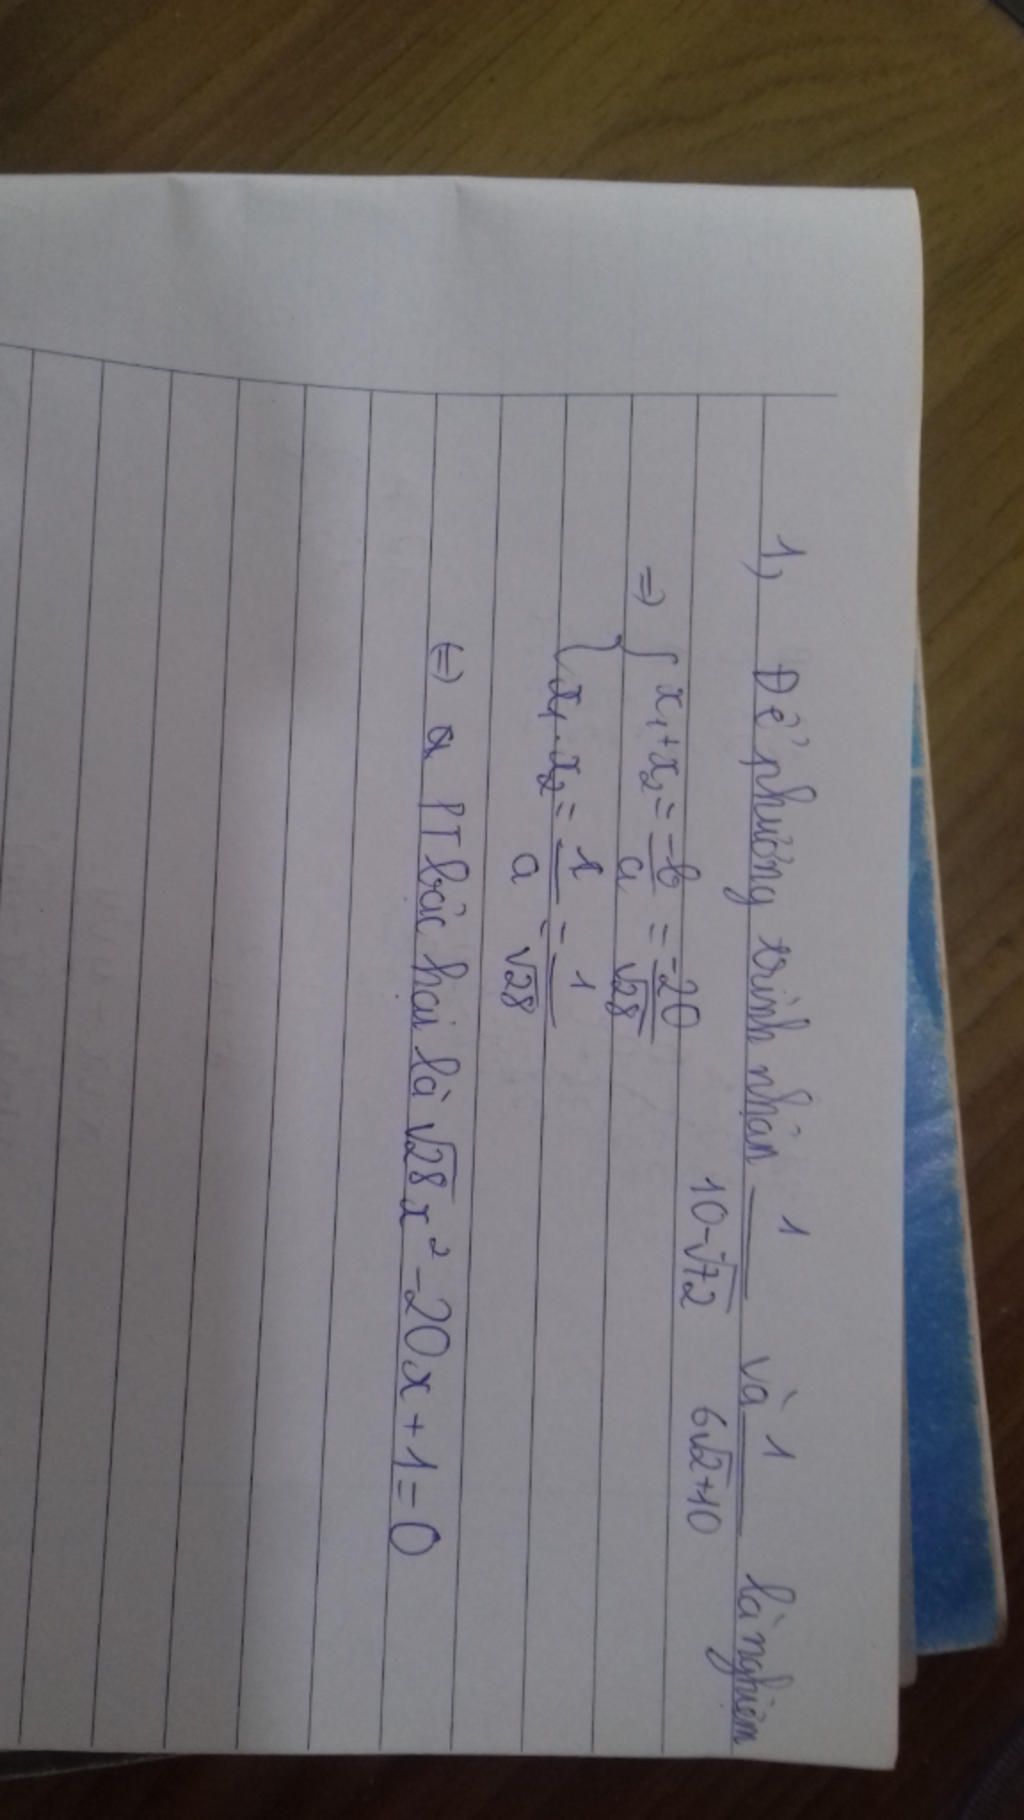 1, Để phương trình nhận 1/(10-√72) và 1/(6√2+10) là nghiệm
=> { x₁+x₂ = -b/a = -20/√28
x₁.x₂ = 1/a = 1/√28
(=) a PT bậc hai là √28 x² -20x+1=0